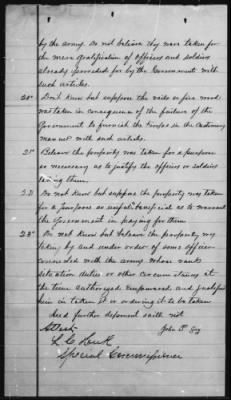 by the army. Do not believe they were taken for
the mere gratification of officers and soldiers
already provided for by the Government with
such articles.
20" Don't know but suppose the rails or fire wood
was taken in consequence of the failure of the
Government to furnish the troops in the customary
manner with such articles.
21" Believe the property was taken for a purpose
so necessary as to justify the officers or soldiers
taking them.
22 Do not know but suppose the property was taken
for a purpose so as to warrant
the Government in paying for them
23" Do not know but believe the property was
taken by and under order of some officer
connected with the army whose rank
situation duties or other circumstances at
the time authorized empowered and
him in taken it or ordering it to be taken
And further deponent saith not
Attest John
Special Commissioner